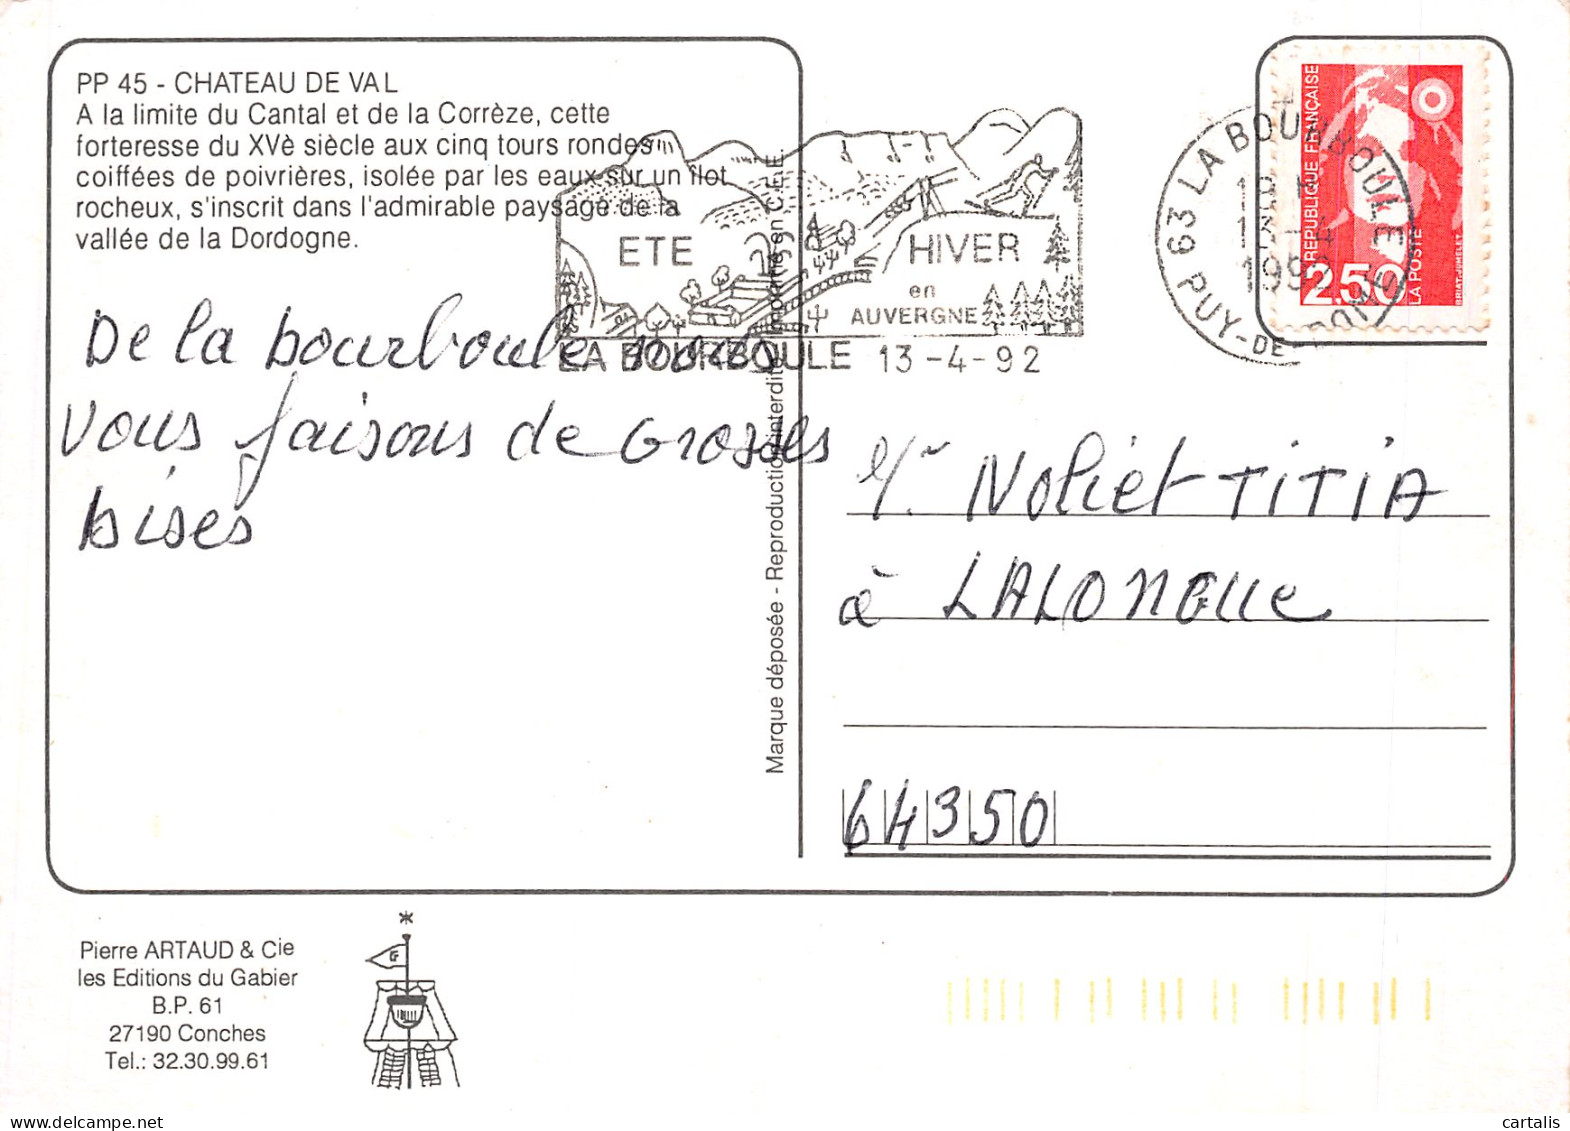 PP 45 - CHATEAU DE VAL
A la limite du Cantal et de la Corrèze, cette
forteresse du XVè siècle aux cinq tours rondes
coiffées de poivrières, isolée par les eaux sur un îlot
rocheux, s'inscrit dans l'admirable paysage de la
vallée de la Dordogne.
De la bourboule nous
vous faisons de Grosses
bises
Marque déposée - Reproduction interdite. Imprimé en C.E.E.
ETE
HIVER
en
AUVERGNE
LA BOURBOULE 13-4-92
63 LA BOURBOULE
18 H
13-4
1992
PUY-DE-DOME
REPUBLIQUE FRANÇAISE
2,50
LA POSTE
BRIAT-JUMELET
Noliet TITIA
à LALONQUE
64350
Pierre ARTAUD & Cie
les Editions du Gabier
B.P. 61
27190 Conches
Tel.: 32.30.99.61
cartalis
delcampe.net